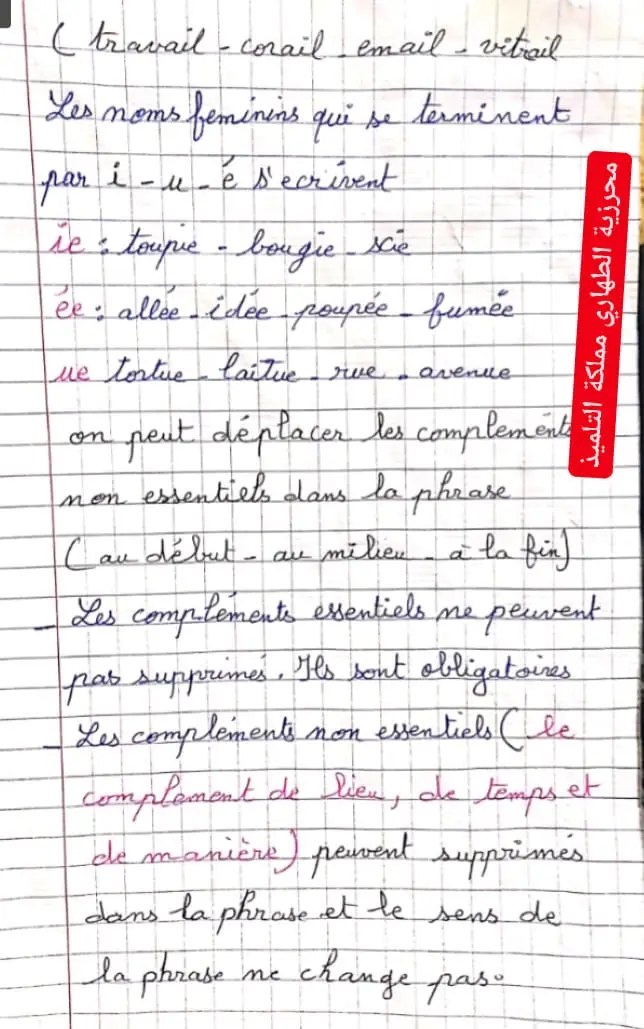 ( travail - corail - email - vitrail
Les noms feminins qui se terminent
par i - u - é s'ecrivent
ie : toupie - bougie - scie
ée : allée - idée - poupée - fumée
ue tortue - laitue - rue - avenue
on peut déplacer les complements
non essentiels dans la phrase
( au début - au milieu - à la fin)
- Les compléments essentiels ne peuvent
pas supprimés. Ils sont obligatoires
- Les compléments non essentiels ( le
complément de lieu, de temps et
de manière) peuvent supprimés
dans la phrase et le sens de
la phrase ne change pas.
محرزية الطهاري مملكة التلميذ